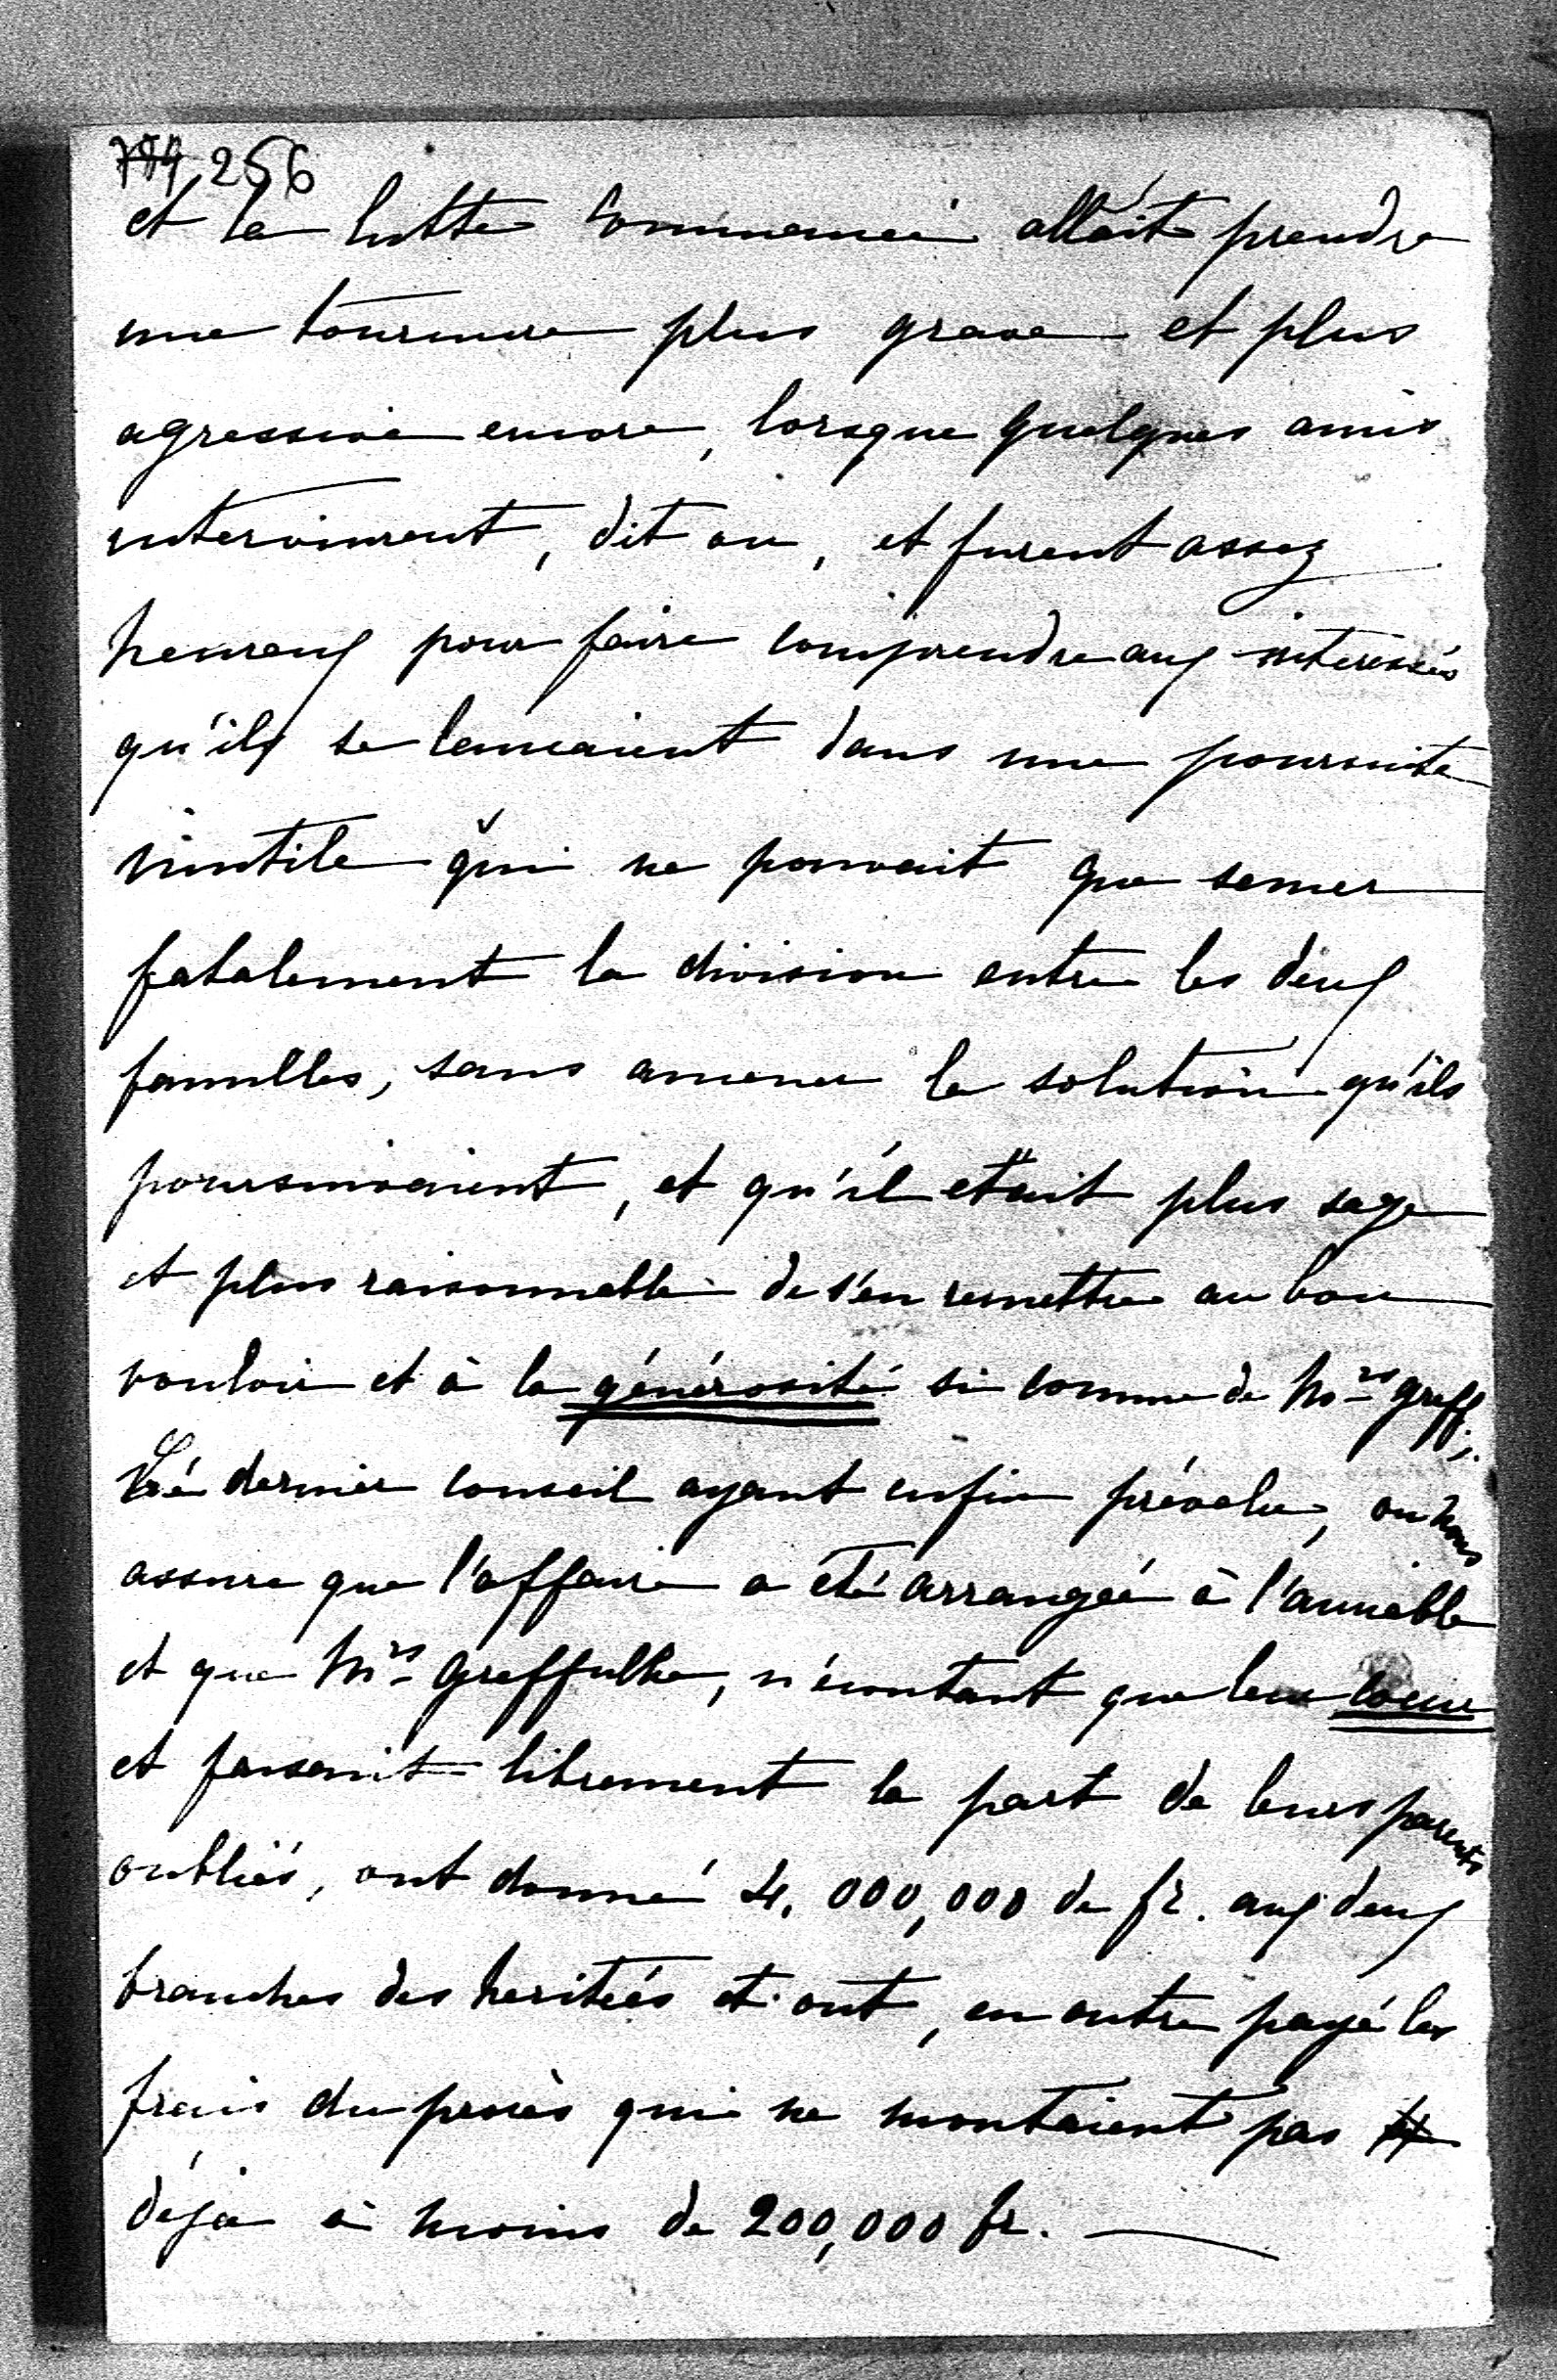 784 256
et la lutte commencée allait prendre
une tournure plus grave et plus
agressive encore, lorsque quelques amis
intervinrent, dit on, et furent assez
heureux pour faire comprendre aux interessés
qu'ils se lançaient dans une poursuite
inutile qui ne pouvait que semer
fatalement la division entre les deux
familles, sans amener la solution qu'ils
poursuivaient, et qu'il était plus sage
et plus raisonnable de s'en remettre au bon
vouloir et à la générosité si connue de Mrs Greff.
Ce dernier conseil ayant enfin prévalu, on nous
assure que l'affaire a été arrangée à l'aimable
et que Mrs Greffulhe, n'écoutant que leur coeur
et faisant librement la part de leurs parents
oubliés, ont donné 4,000,000 de fr. aux deux
branches des heritiés et ont, en outre payé les
frais du procès qui ne montaient pas
déjà à moins de 200,000 fr. —